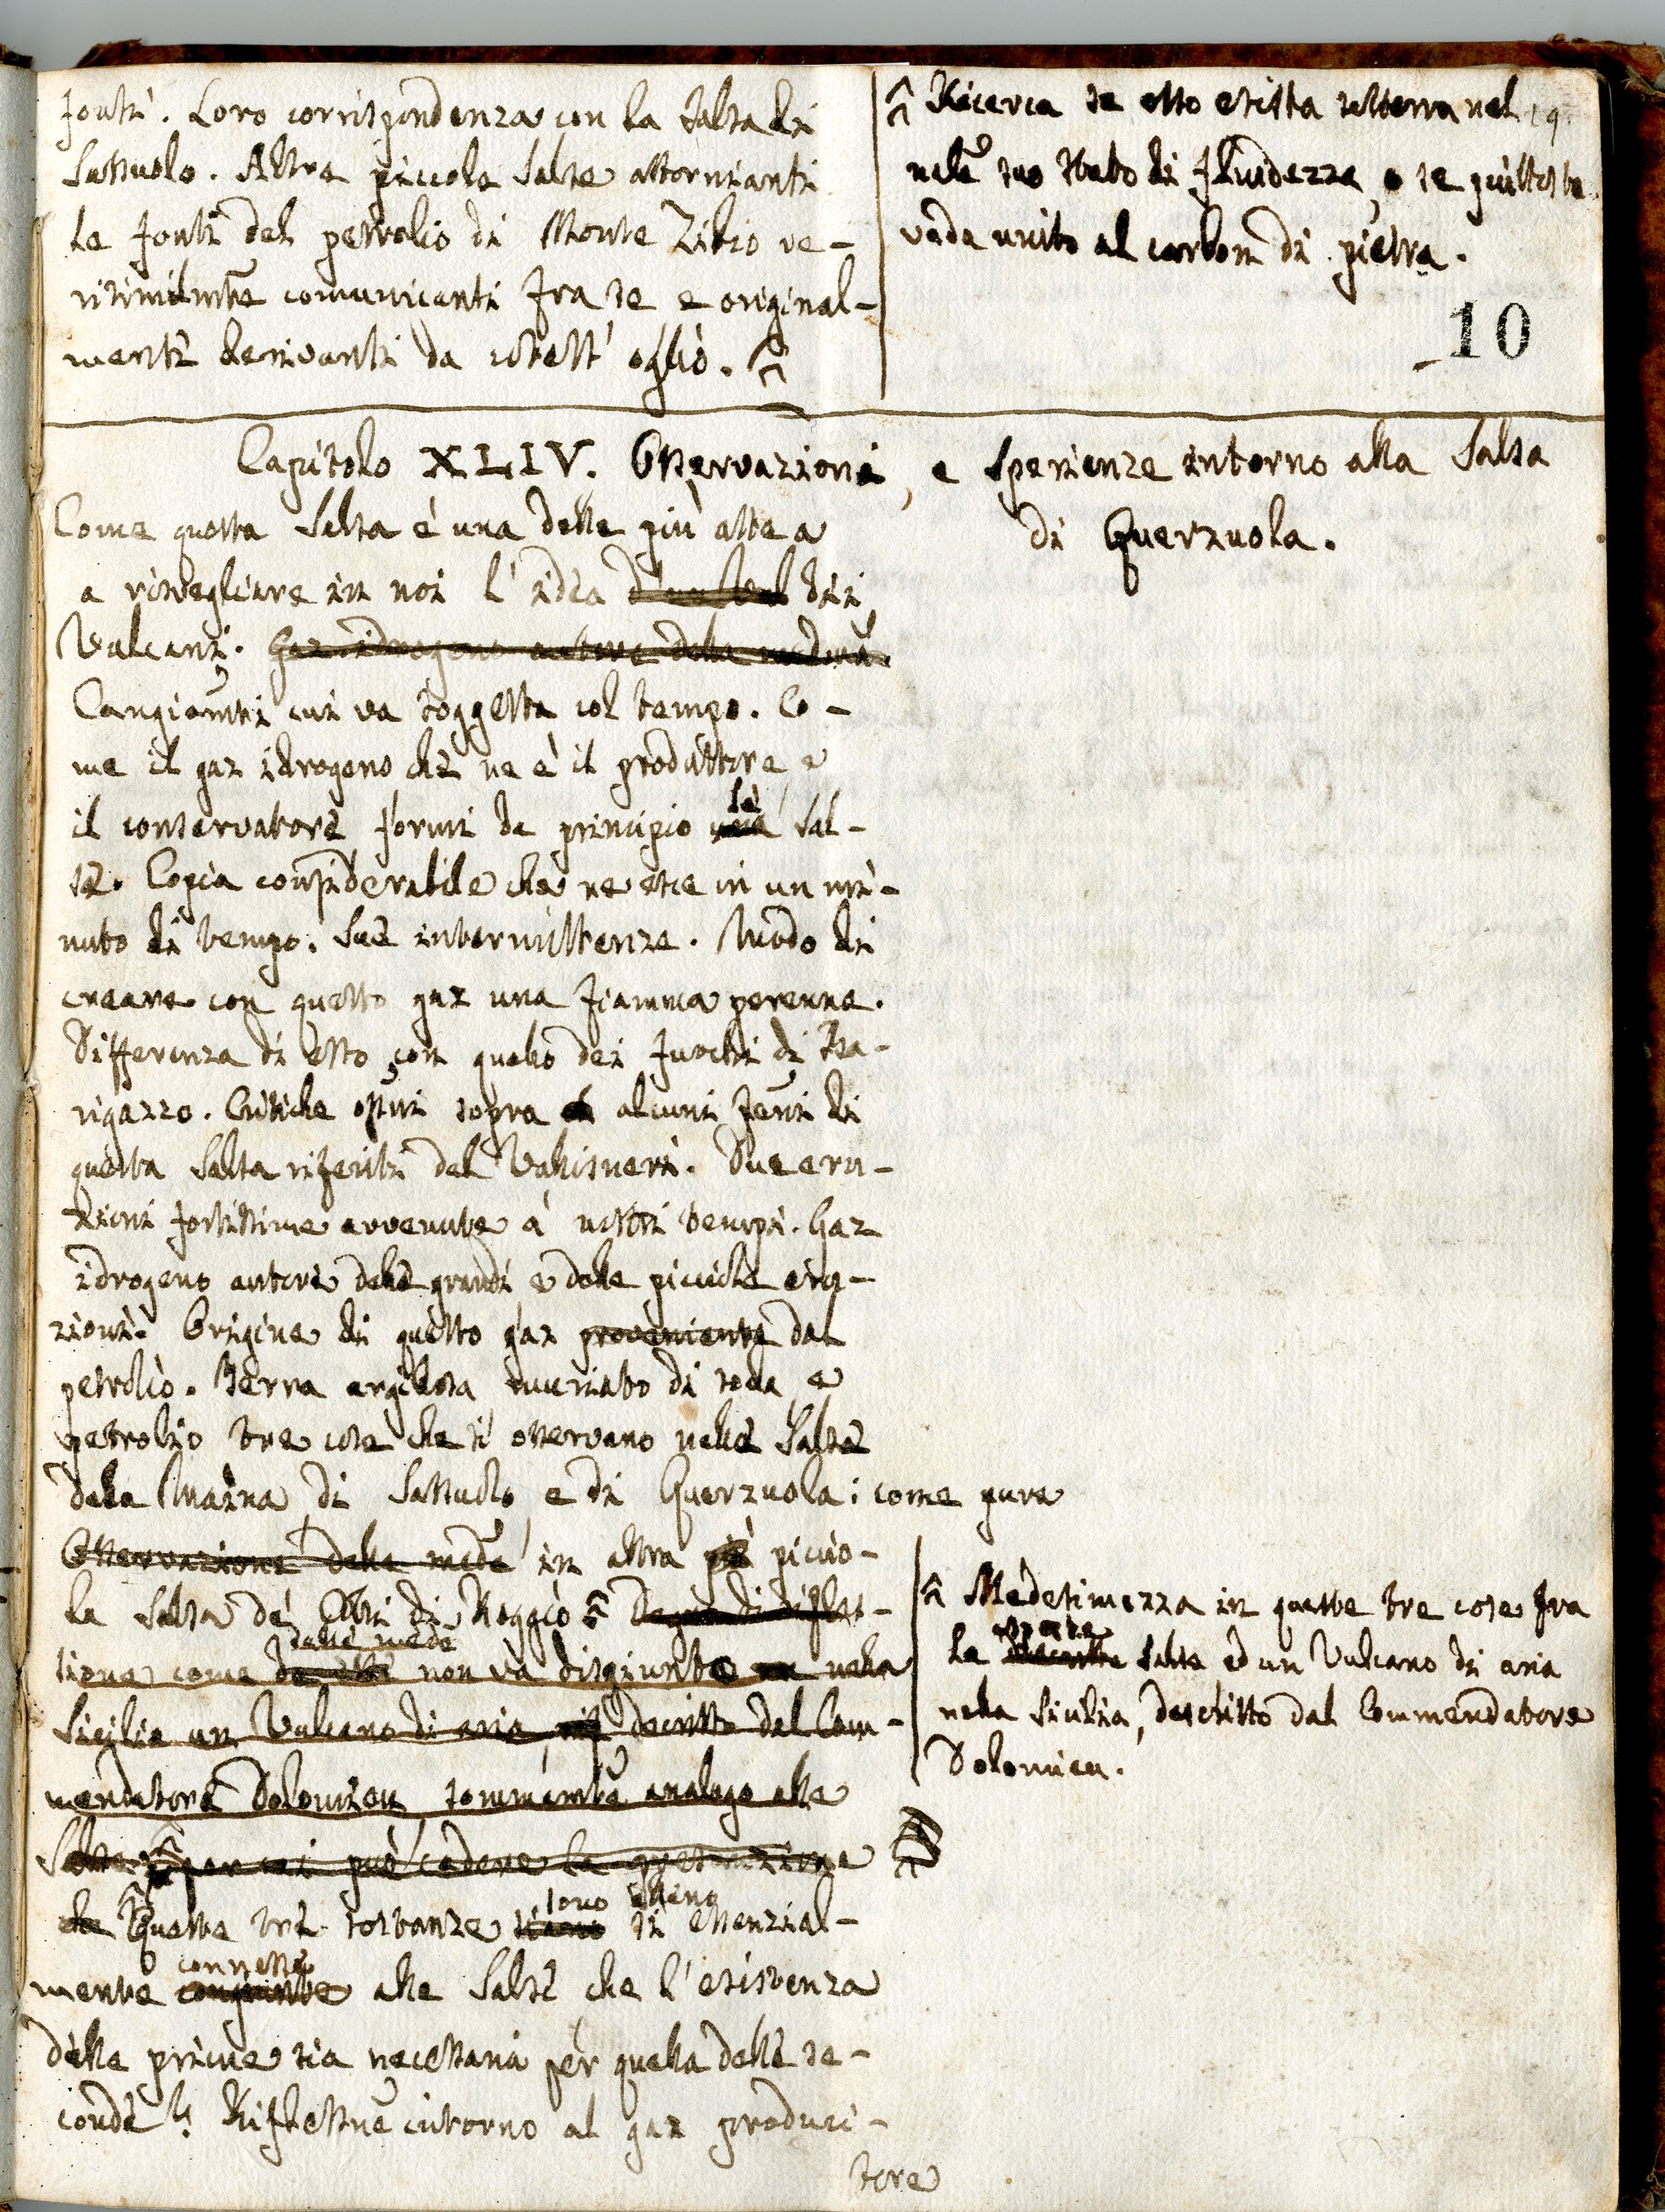 fonti. Loro corrispondenza con la Salsa di
Sassuolo. Altre picciole Salse attornianti
le fonti del petrolio di Monte Zibio ve-
risimilmte comunicanti fra se e original-
menti derivanti da cotest' oglio.
Ricerca se esso esista sotterra nel 19.
nele suo stato di fluidezza, o se piuttosto
vada unito al carbon di pietra.
10
Capitolo XLIV. Osservazioni, e Sperienze intorno alla Salsa
di Querzuola.
Come questa Salsa è una delle più atte a
a risvegliare in noi l'idea d'un Vul dei
Vulcani. Gaz idrogeno autore della medma.
Cangiamti cui va soggetta col tempo. Co-
me il gaz idrogeno che ne è il produttore e
il conservatore formi da principio una le Sal-
se. Copia considerabile che ne esce in un mi-
nuto di tempo. Sue intermittenze. Modo di
creare con questo gaz una fiamma perenne.
Differenza di esso con quello dei fuochi di Ba-
rigazzo. Critiche ossni sopra alcuni feni di
questa Salsa riferiti dal Vallisneri. Due eru-
zioni fortissime avvenute a' nostri tempi. Gaz
idrogeno autore delle grandi e delle picciole eru-
zioni. Origine di questo gaz proveniente dal
petrolio. Terra argillosa muriato di soda e
petrolio tre cose che si osservano nelle Salse
della Maina di Sassuolo e di Querzuola: come pure
Osservazione delle medme in altra piccio-
la Salsa de' Colli di Reggio Degno di rifles-
sione come da esse dalle medme non va disgiunto nella
Sicilia un Vulcano di aria, descritto dal Com-
mendatore Dolomieu sommamte analogo alle
Salse. per cui può cadere la
che Queste tre sostanze siano sono elleno sì essenzial-
mente congiunte connesse alle Salse che l'esistenza
delle prime sia necessaria per quella delle se-
conde? Riflessne intorno al gaz produci-
tore
Medesimezza in queste tre cose fra
le descritte esposte Salse ed un Vulcano di aria
nella Sicilia, descritto dal Commendatore
Dolomieu.